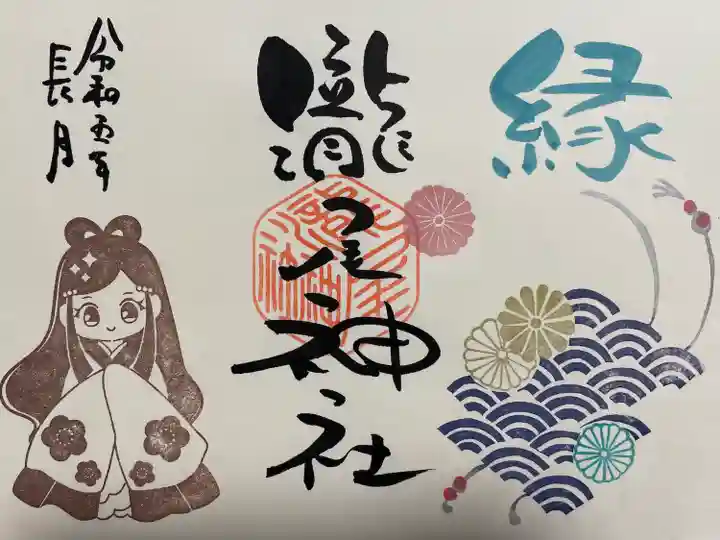 縁
瀧尾神社
令和五年
長月